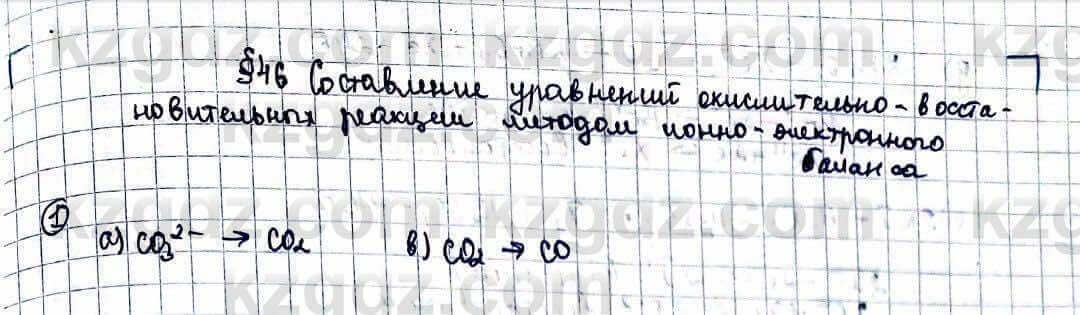 §46 Составление уравнений окислительно-восста-
новительных реакции методом ионно-электронного
баланса
① а) CO₃²⁻ → CO₂ в) CO₂ → CO
kzgdz.com